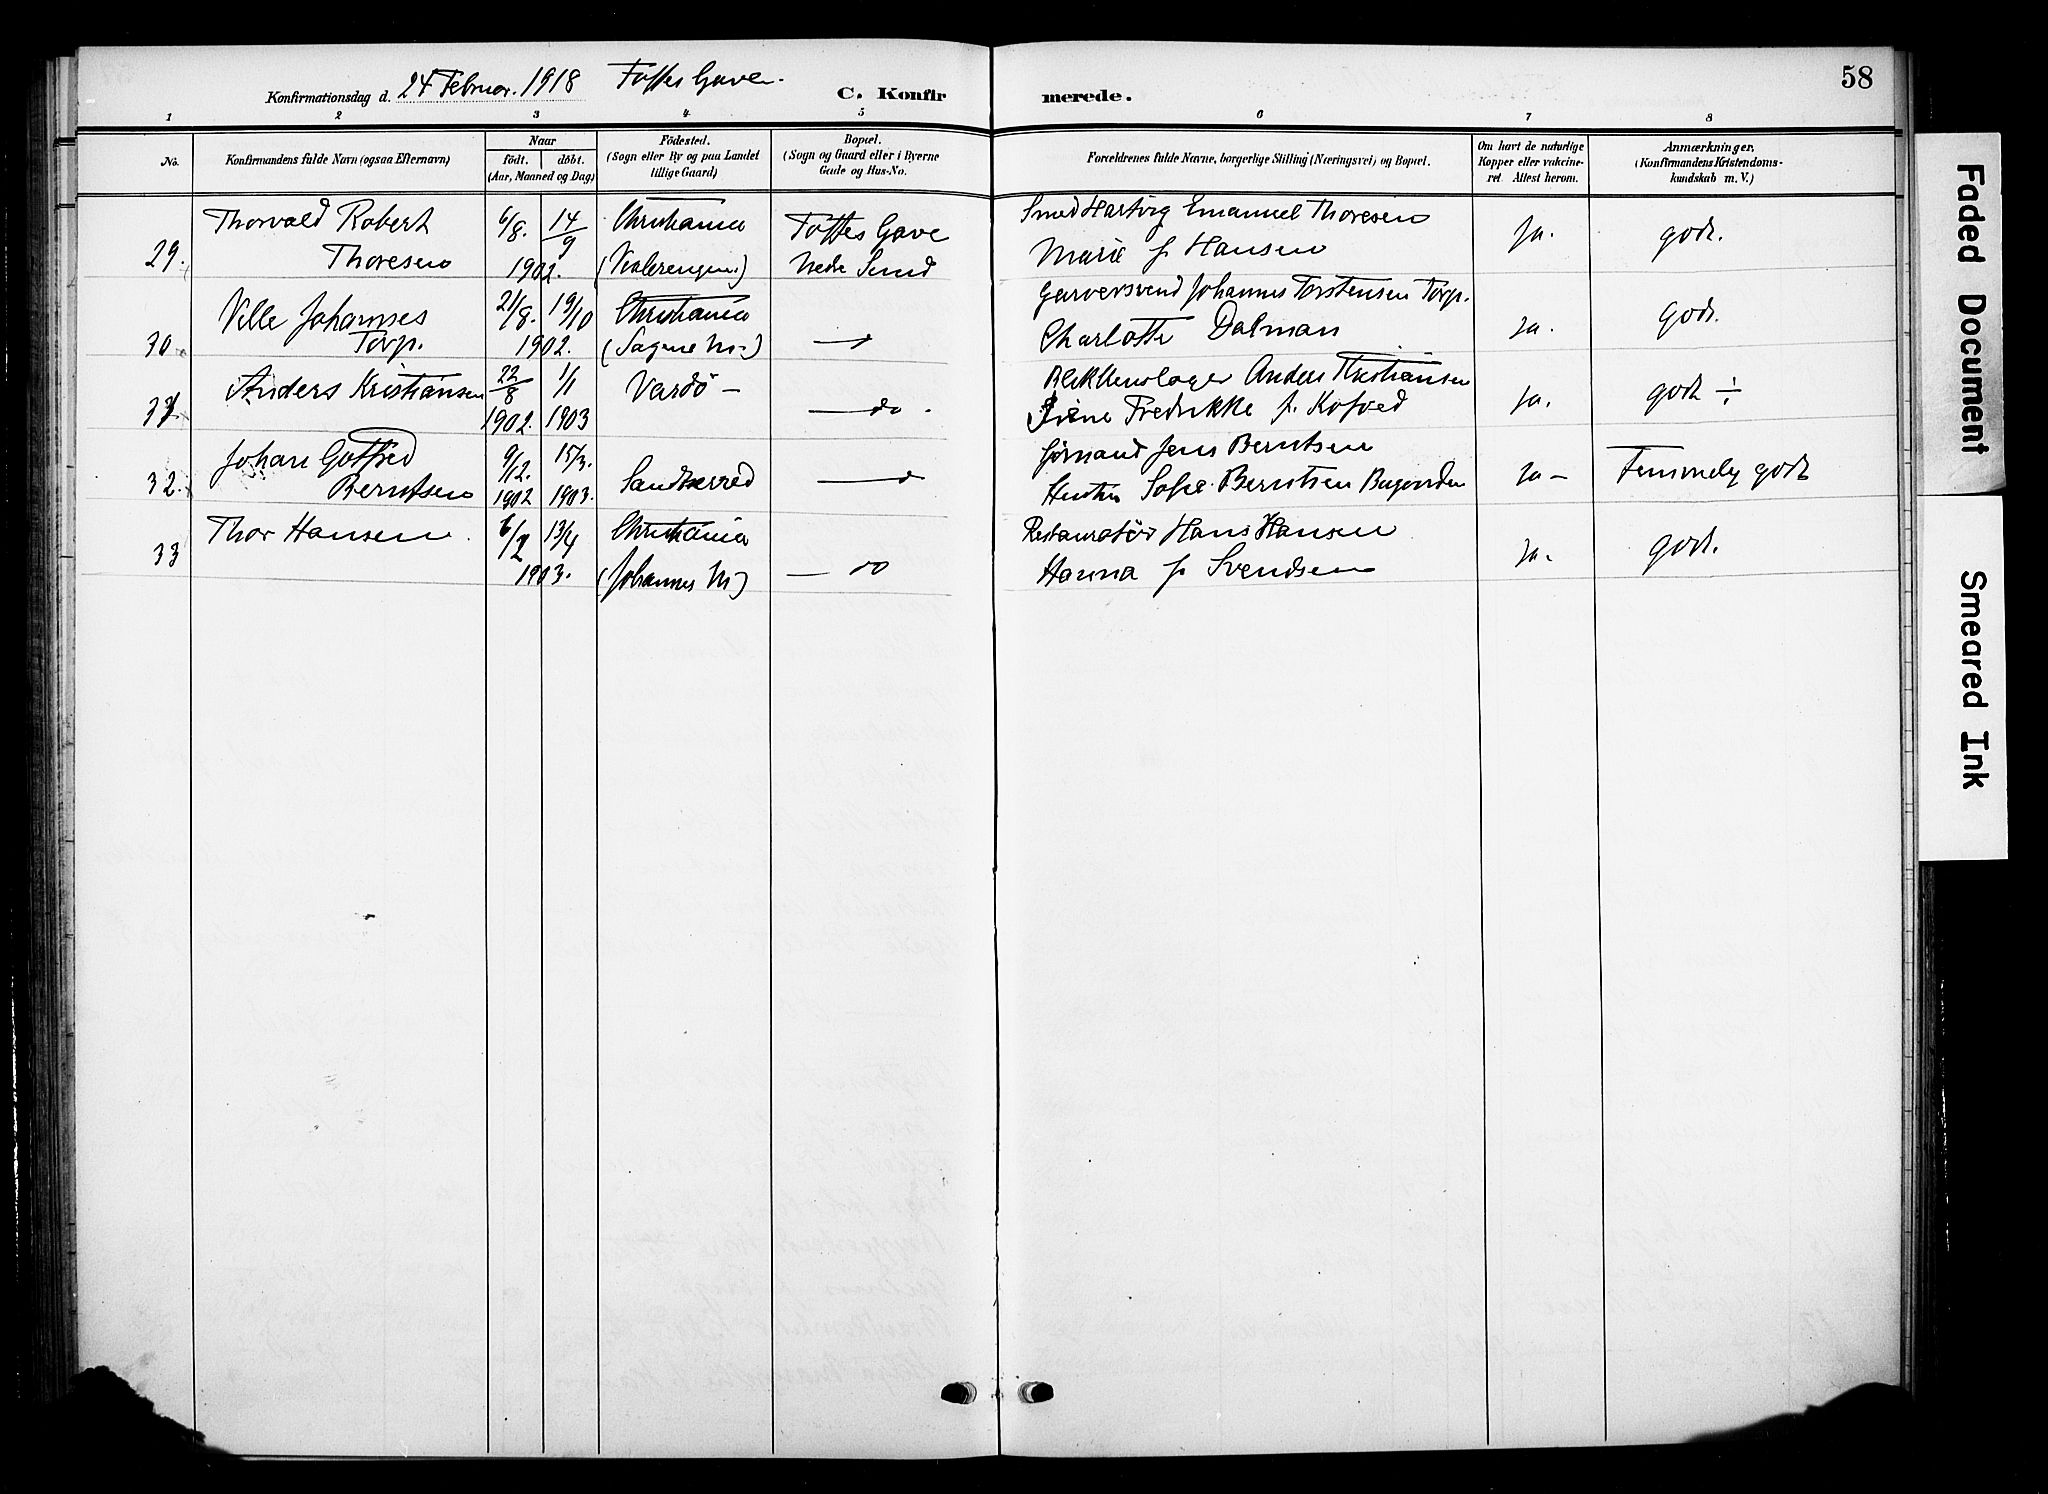 58
Konfirmationsdag d. 24 Februar. 1918 Toftes Gave.
C. Konfirmerede.
1 2 3 4 5 6 7 8
No.
Konfirmandens fulde Navn (ogsaa Efternavn)
Naar
födt. döbt.
(Aar, Maaned og Dag)
Födested.
(Sogn eller By og paa Landet
tillige Gaard)
Bopæl.
(Sogn og Gaard eller i Byerne
Gade og Hus-No.
Forældrenes fulde Navne, borgerlige Stilling (Næringsvei) og Bopæl.
Om havt de naturlige
Kopper eller vakcine-
ret Attest herom.
Anmærkninger.
(Konfirmandens Kristendoms-
kundskab m. V.)
Thorvald Robert 6/8. 14/9 Christiania Toftes Gave Smed Hartvig Emanuel Thoresen
29. Thoresen 1902. (Vaalerengen) Nedre Sund Marie f. Hansen ja. godt.
Ville Johannes 21/8. 19/10 Christiania Garversvend Johannes Torstensen Torp.
30. Torp. 1902. (Sagene M-) Charlotte Dalman ja. Godt.
Anders Kristiansen 22/8 1/1 Vardö - Blikkenslager Anders Kristiansen
31. 1902. 1903 — do. Fredrikke f. Kofoed ja. godt ÷
Johan Gotfred 9/12. 15/3. Jens Berntsen
32. Berntsen 1902 1903. Sandherred Hustru Sofie Berntsen ja - Temmelig godt
Thor Hansen. 6/2 13/4 Christiania Restauratör Hans Hansen
33 1903. (Johannes M) — do Hanna f. Svendsen ja. godt.
Faded Document
Smeared Ink